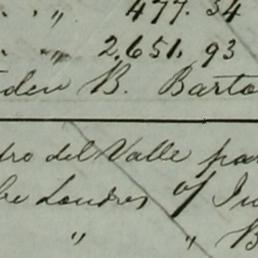 . . " 477. 34
. " 2,651. 93
den B. Barto
dro del Valle par
be Londres of Ju
" " B